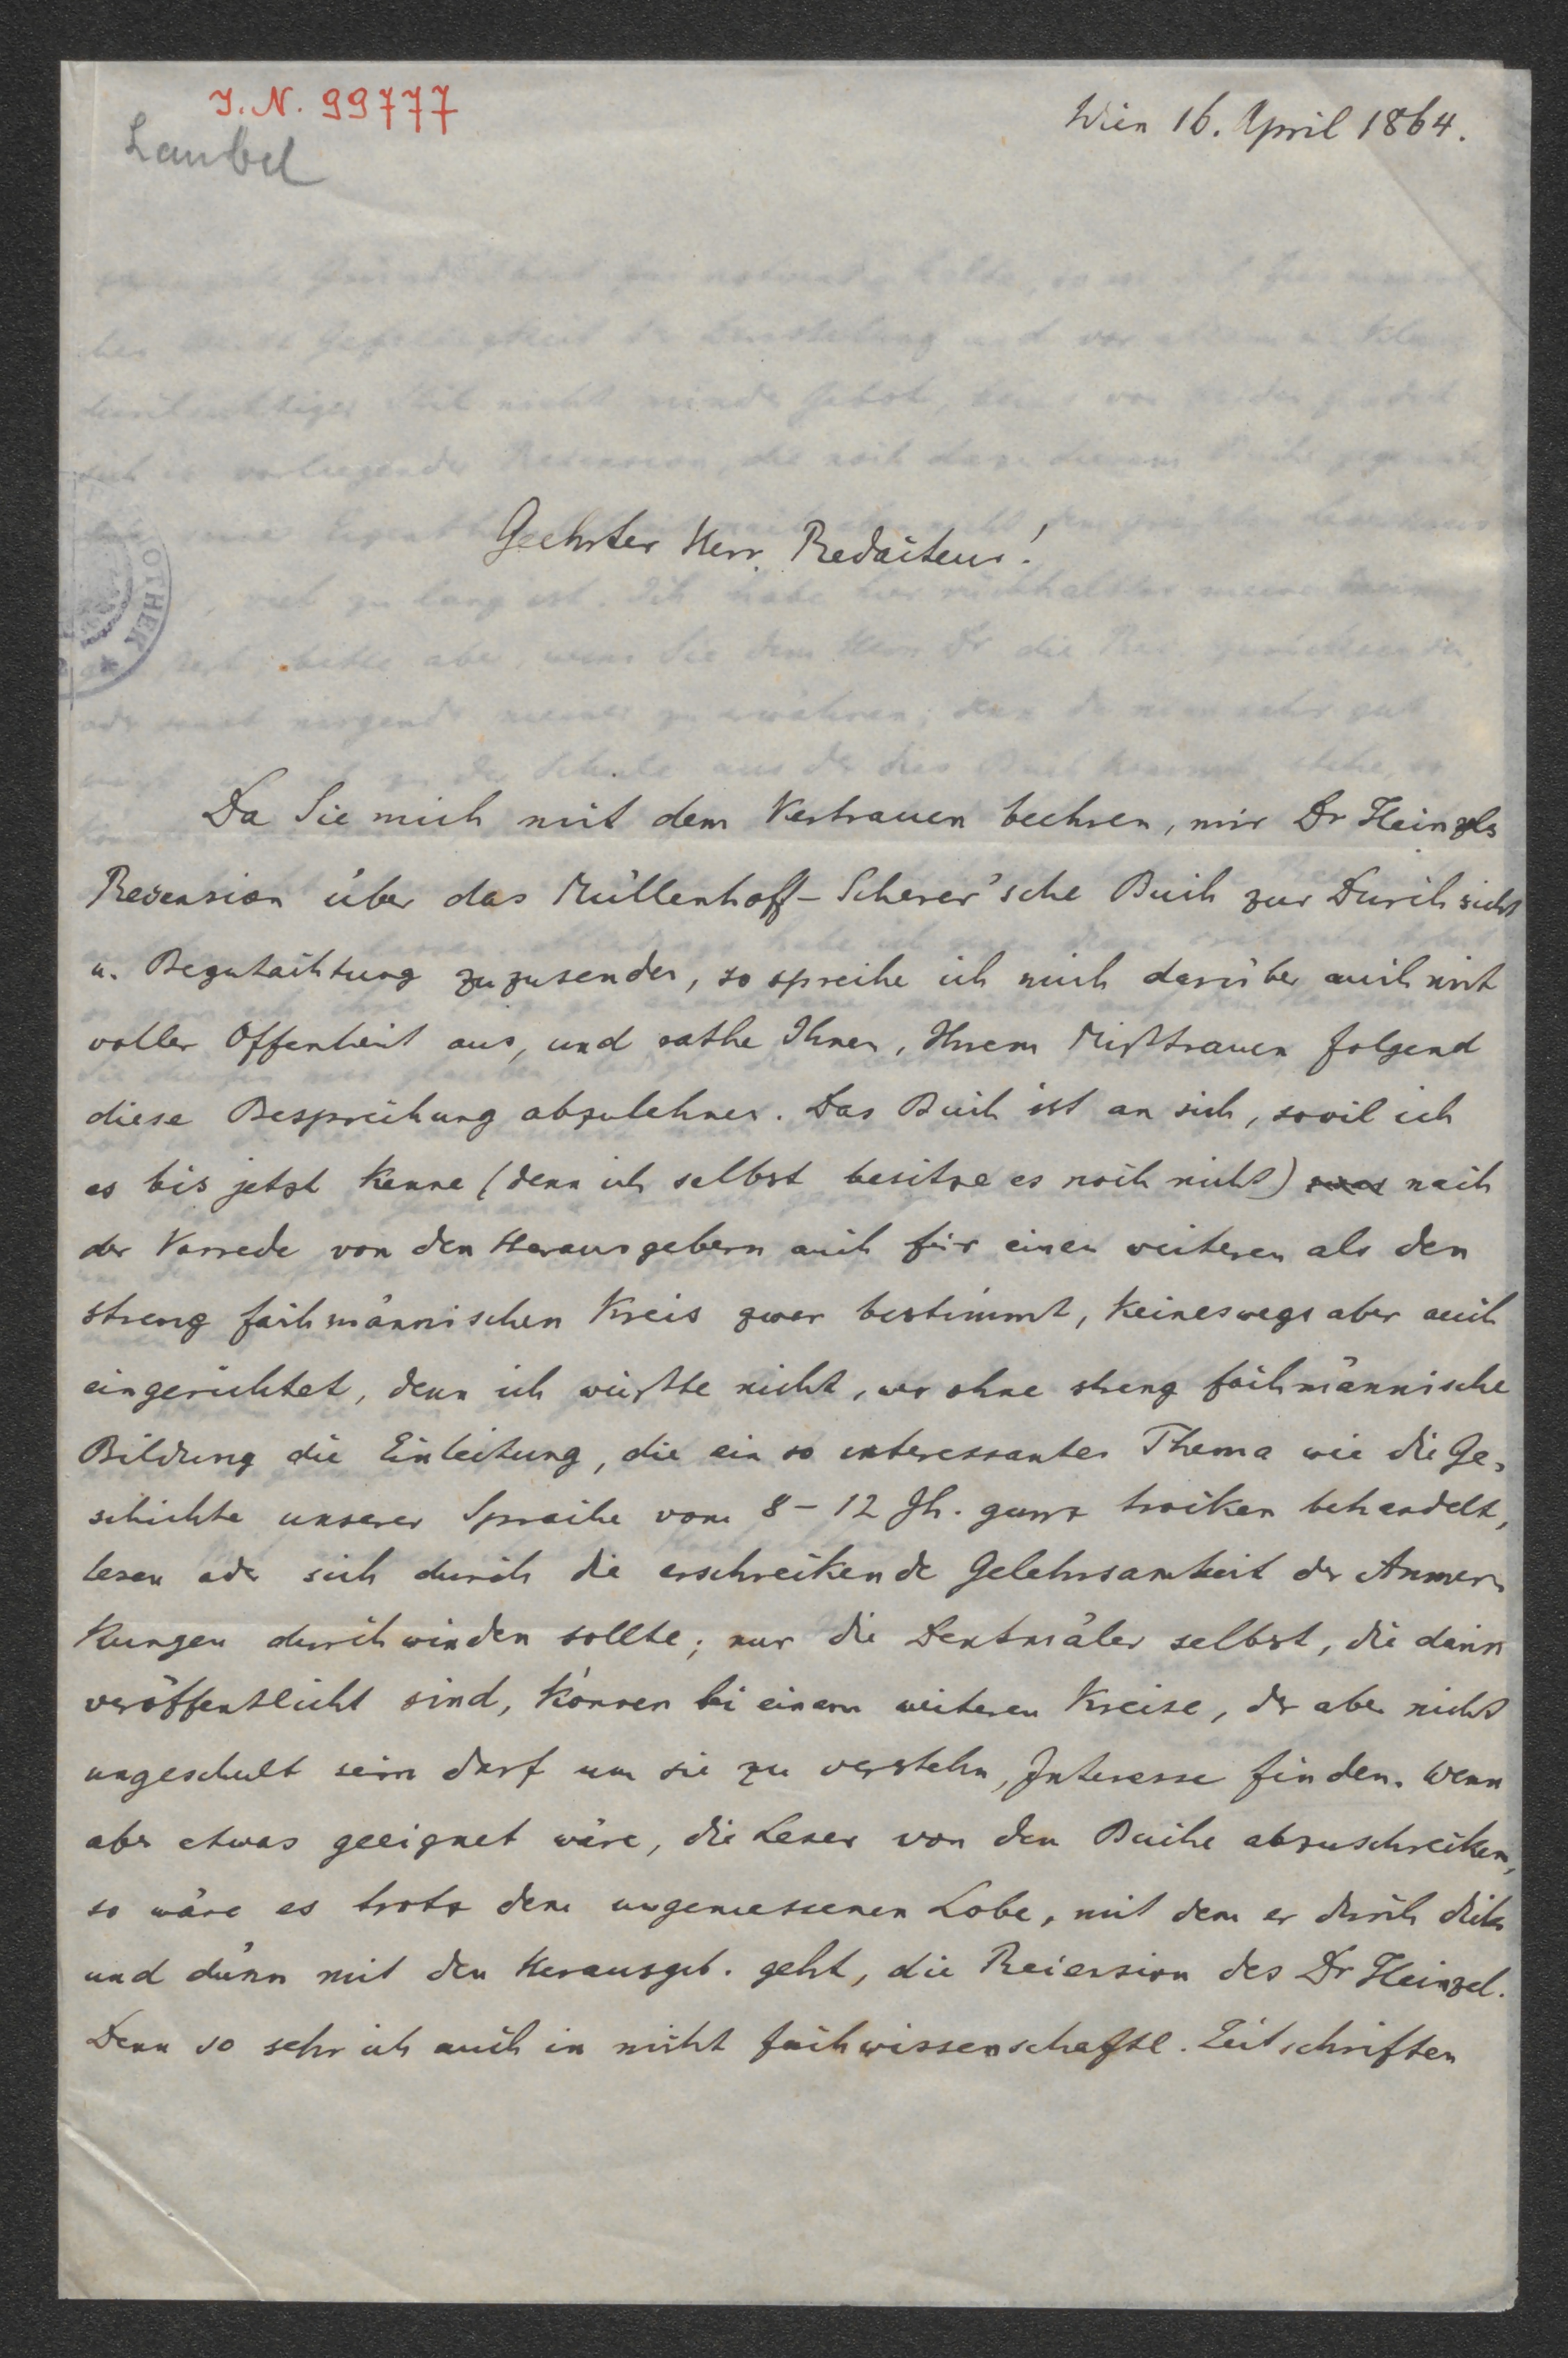 I.N. 99777
Lambel
Wien 16. April 1864.
Geehrter Herr Redacteur!
OTHEK
Da Sie mich mit dem Vertrauen beehren, mir Dr Heinzels
Recension über das Müllenhoff-Scherer'sche Buch zur Durchsicht
u. Begutachtung zuzusenden, so spreche ich mich darüber auch mit
voller Offenheit aus, und rathe Ihnen, Ihrem Mißtrauen folgend
diese Besprechung abzulehnen. Das Buch ist an sich, sovil ich
es bis jetzt kenne (denn ich selbst besitze es noch nicht) nach
der Vorrede von den Herausgebern auch für einen weiteren als den
streng fachmännischen Kreis zwar bestimmt, keineswegs aber auch
eingerichtet, denn ich wüßte nicht, wer ohne streng fachmännische
Bildung die Einleitung, die ein so interessantes Thema wie die Ge-
schichte unserer Sprache vom 8-12 Jh. ganz trocken behandelt,
lesen oder sich durch die erschreckende Gelehrsamkeit der Anmer-
kungen durchwinden sollte; nur die Denkmäler selbst, die darin
veröffentlicht sind, können bei einem weiteren Kreise, der aber nicht
ungeschult sein darf um sie zu verstehn, Interesse finden. Wenn
aber etwas geeignet wäre, die Leser von dem Buche abzuschrecken,
so wäre es trotz dem ungemessenen Lobe, mit dem er durch dick
und dünn mit den Herausgeb. geht, die Recension des Dr Heinzel.
Denn so sehr ich auch in nicht fachwissenschaftl. Zeitschriften